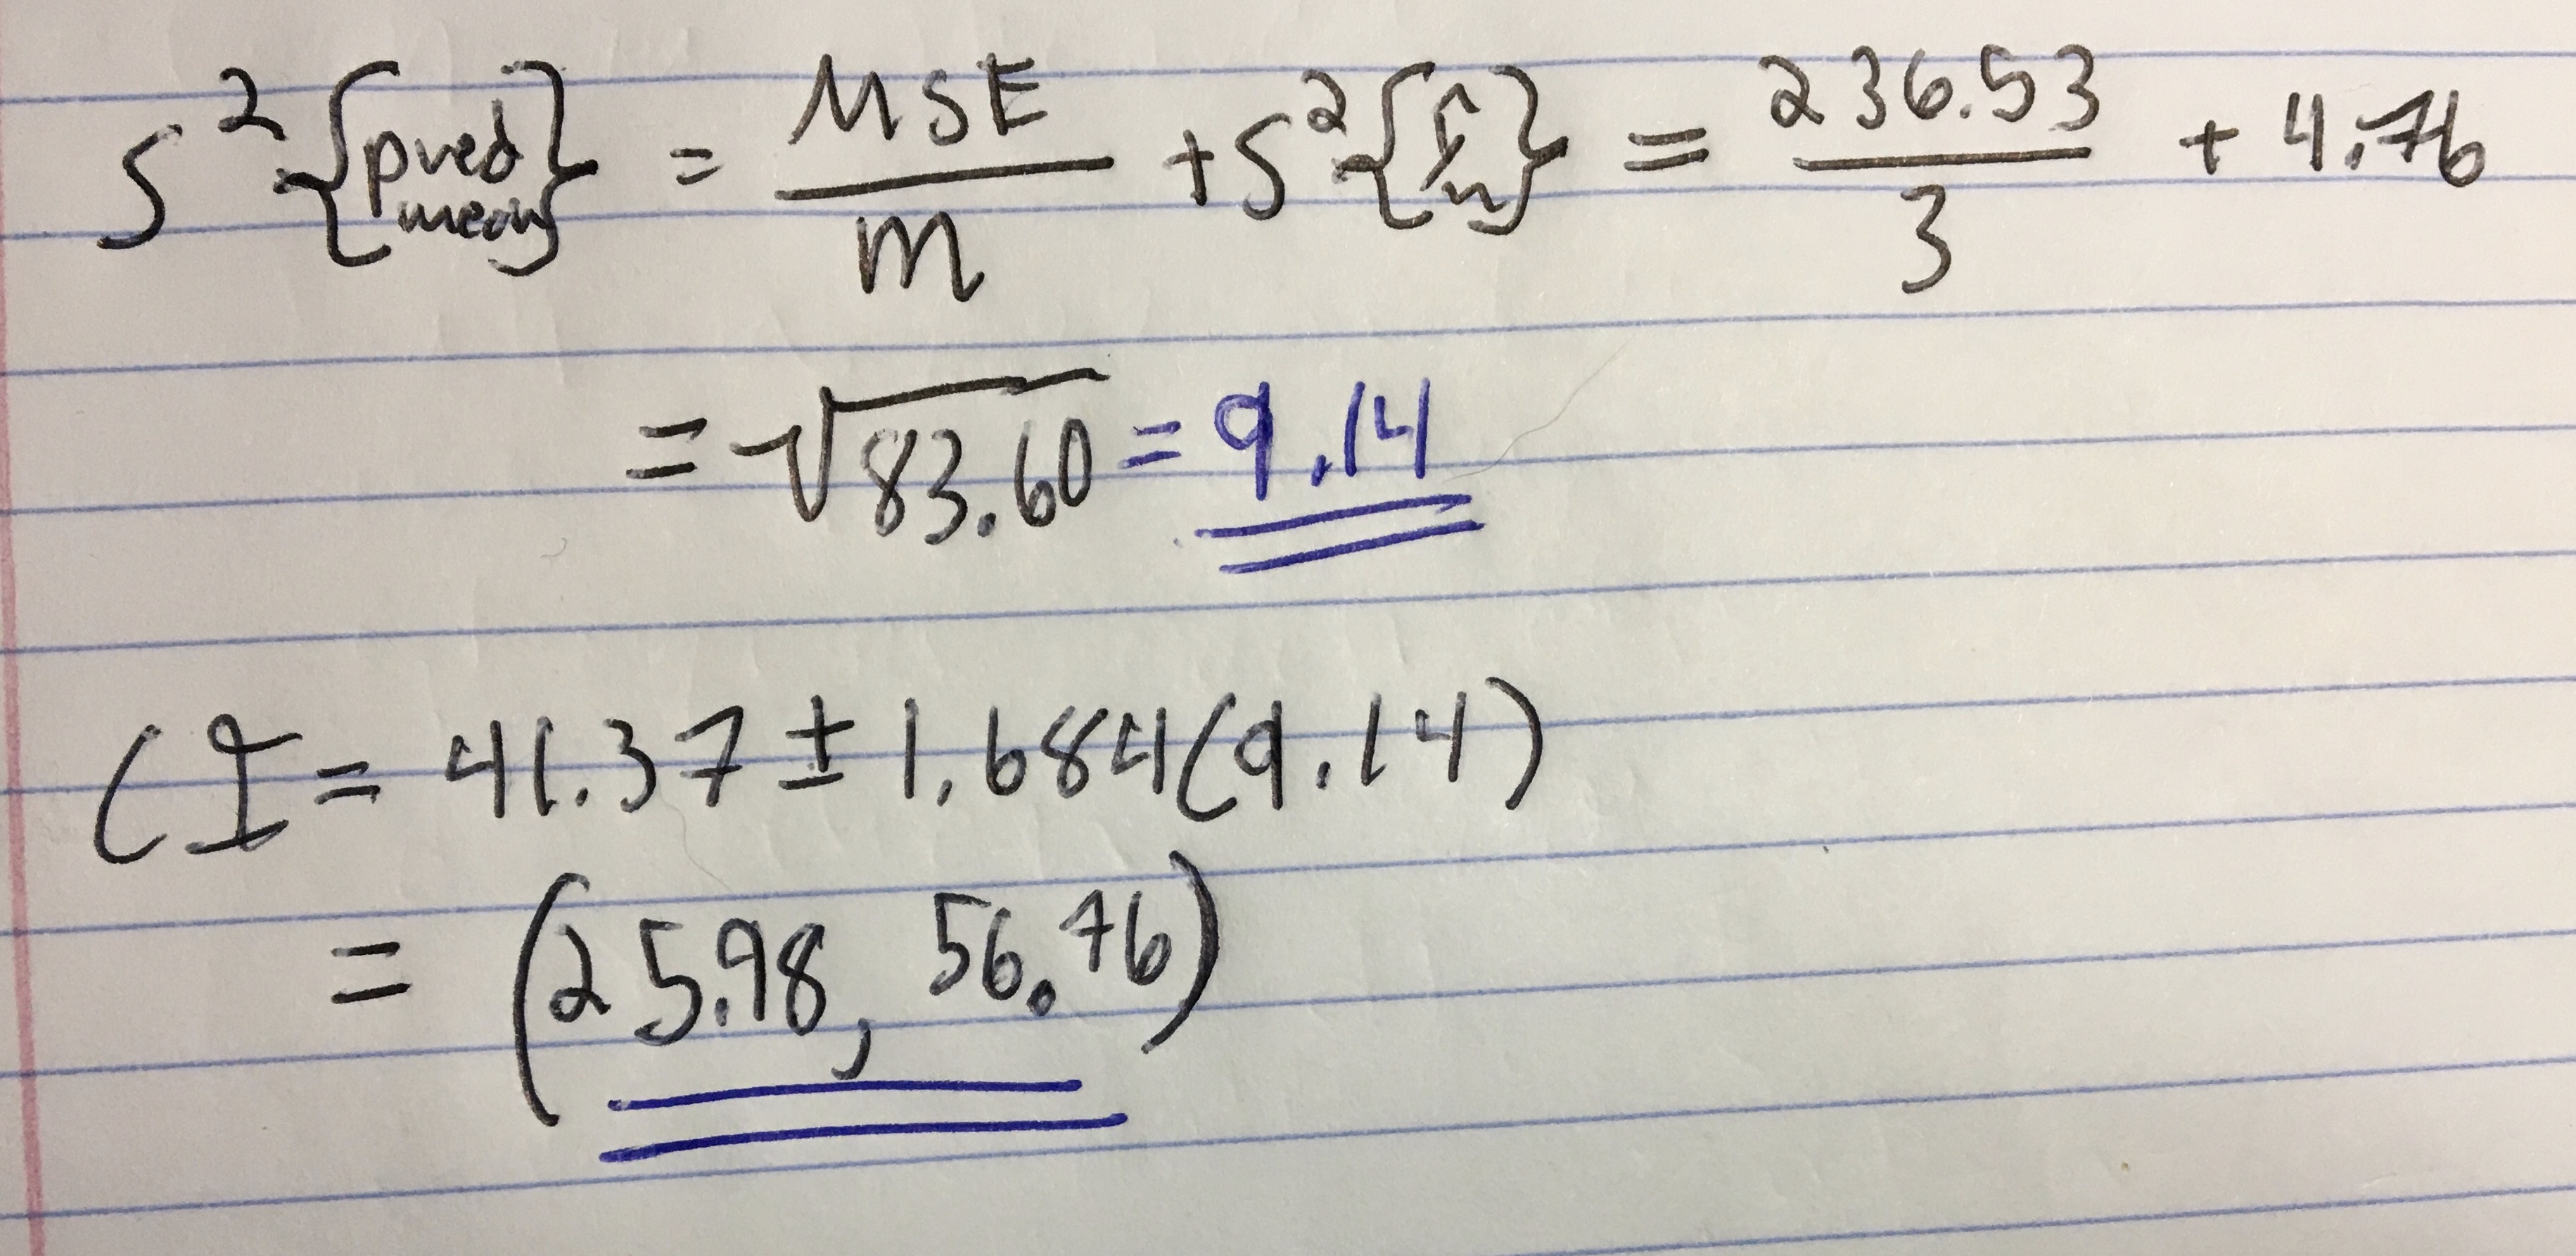 S²{pred mean} = MSE/m + S²{Ŷₕ} = 236.53/3 + 4.76
= √83.60 = 9.14
CI = 41.37 ± 1.684(9.14)
= (25.98, 56.76)